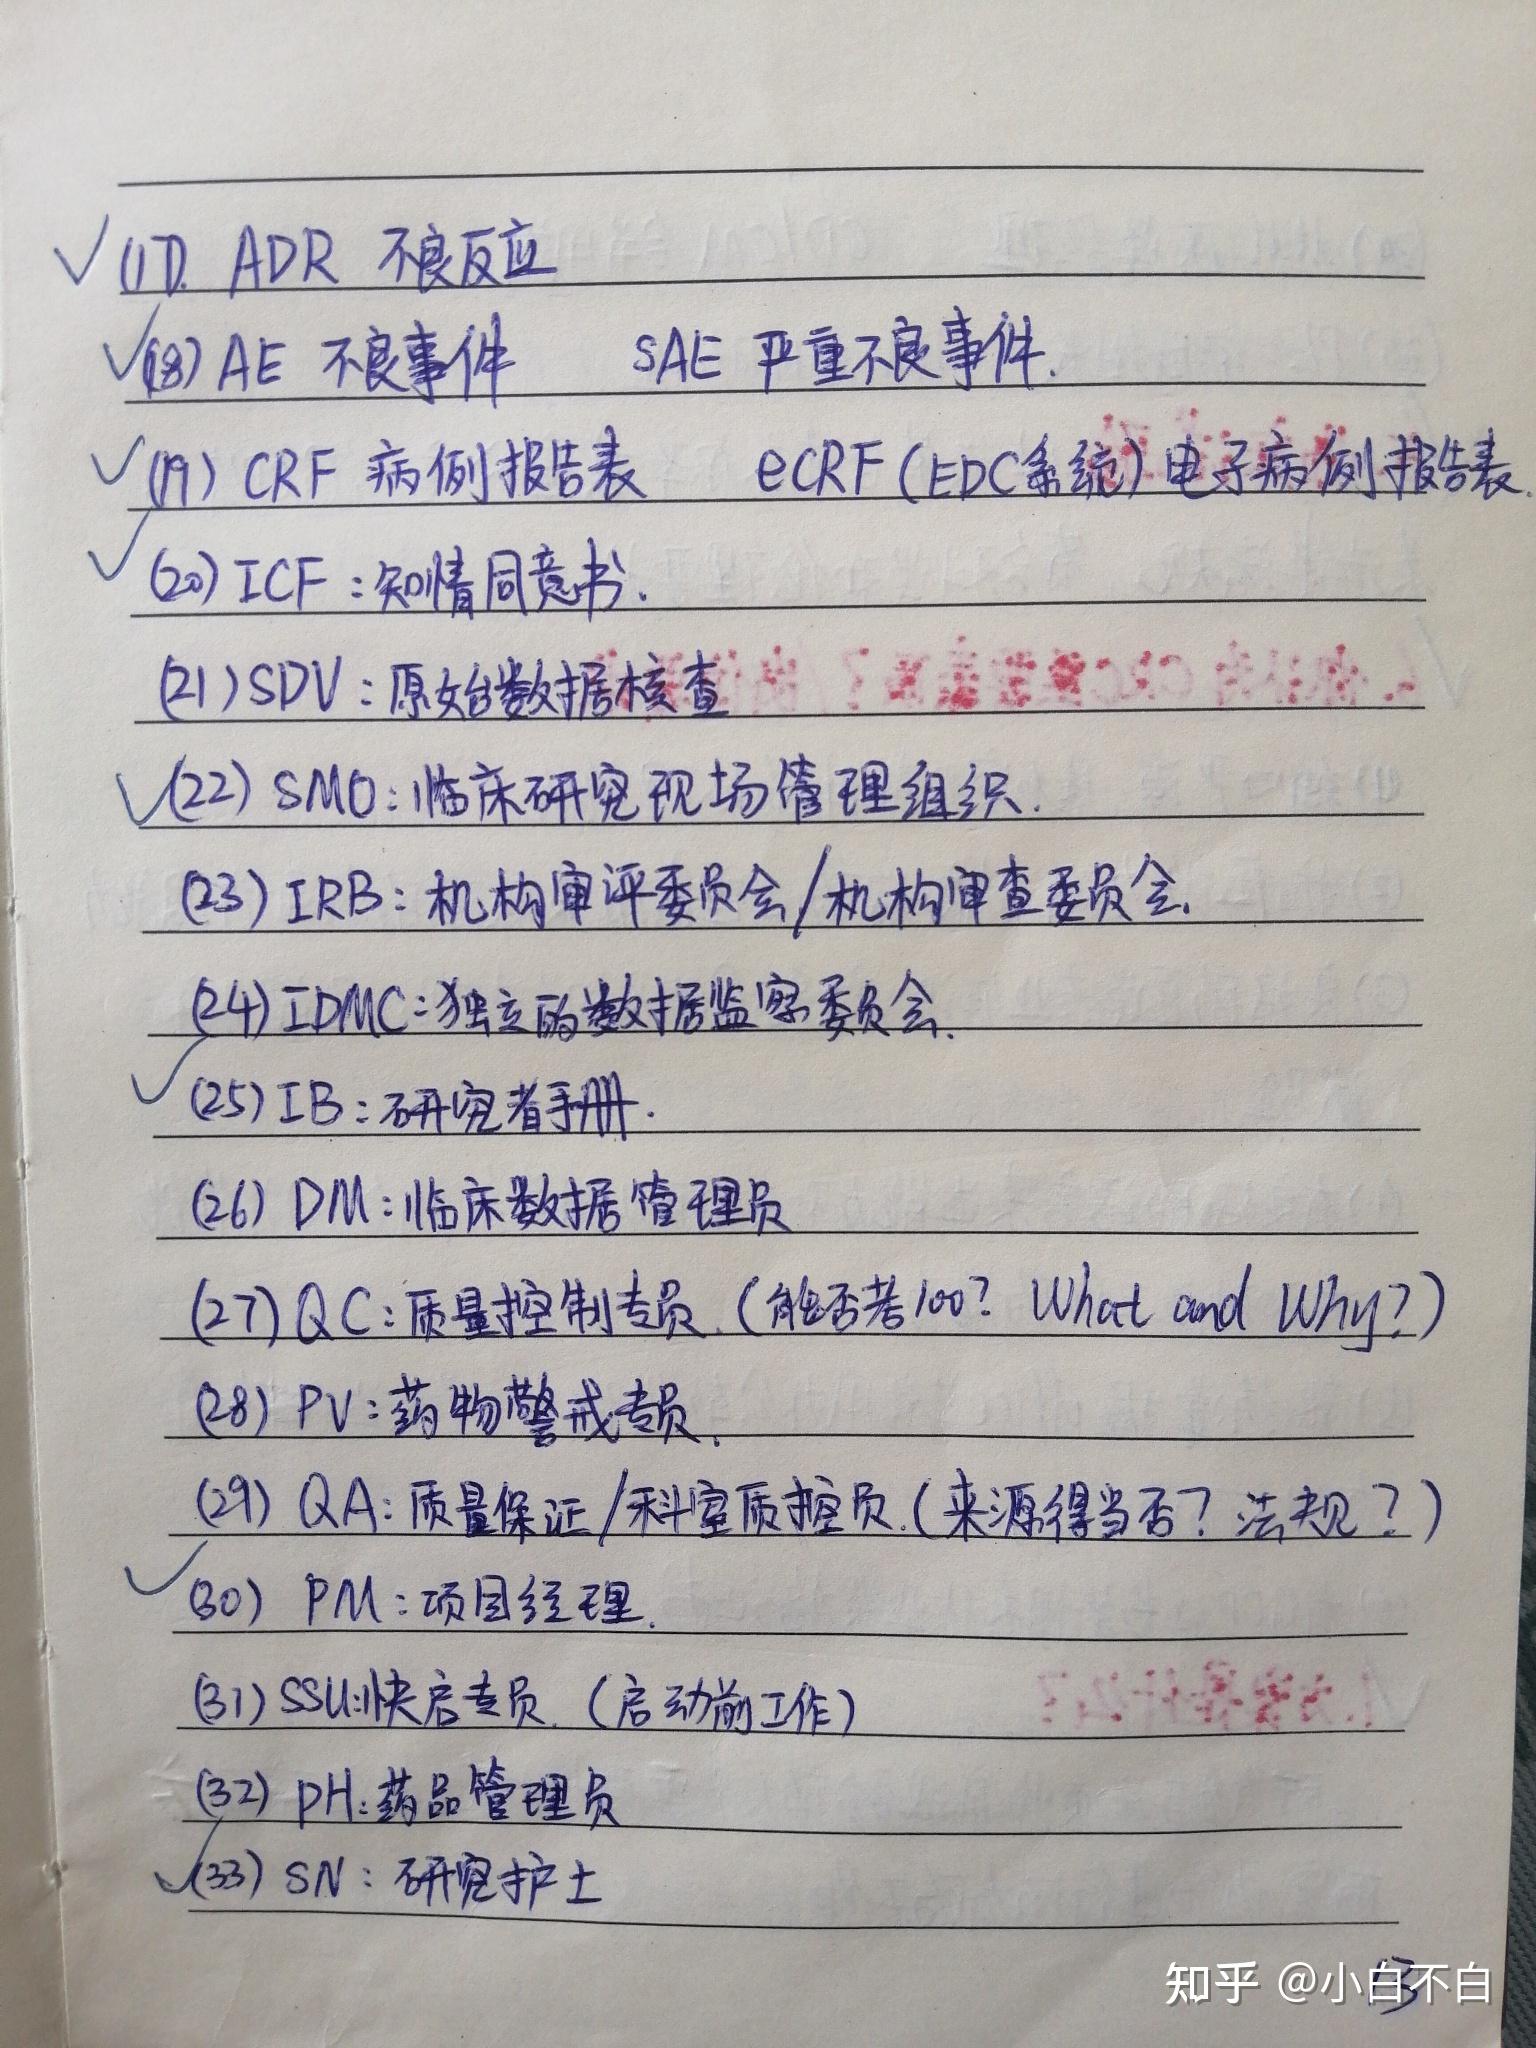 (17). ADR 不良反应
(18) AE 不良事件 SAE 严重不良事件.
(19) CRF 病例报告表 eCRF(EDC系统)电子病例报告表.
(20) ICF:知情同意书.
(21) SDV:原始数据核查
(22) SMO:临床研究现场管理组织.
(23) IRB:机构审评委员会/机构审查委员会.
(24) IDMC:独立的数据监察委员会.
(25) IB:研究者手册.
(26) DM:临床数据管理员
(27) QC:质量控制专员.(能否考100? What and Why?)
(28) PV:药物警戒专员.
(29) QA:质量保证/科室质控员.(来源得当否?法规?)
(30) PM:项目经理.
(31) SSU:快启专员.(启动前工作)
(32) PH:药品管理员
(33) SN:研究护士
13
知乎 @小白不白